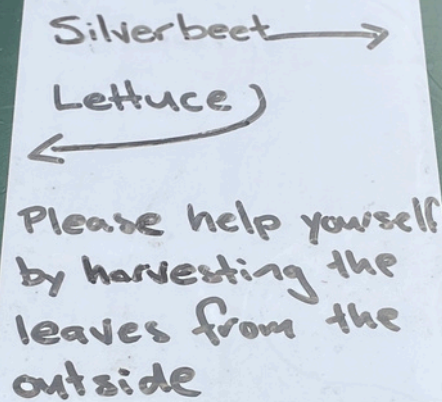 Silverbeet
Lettuce
Please help yourself
by harvesting the
leaves from the
outside